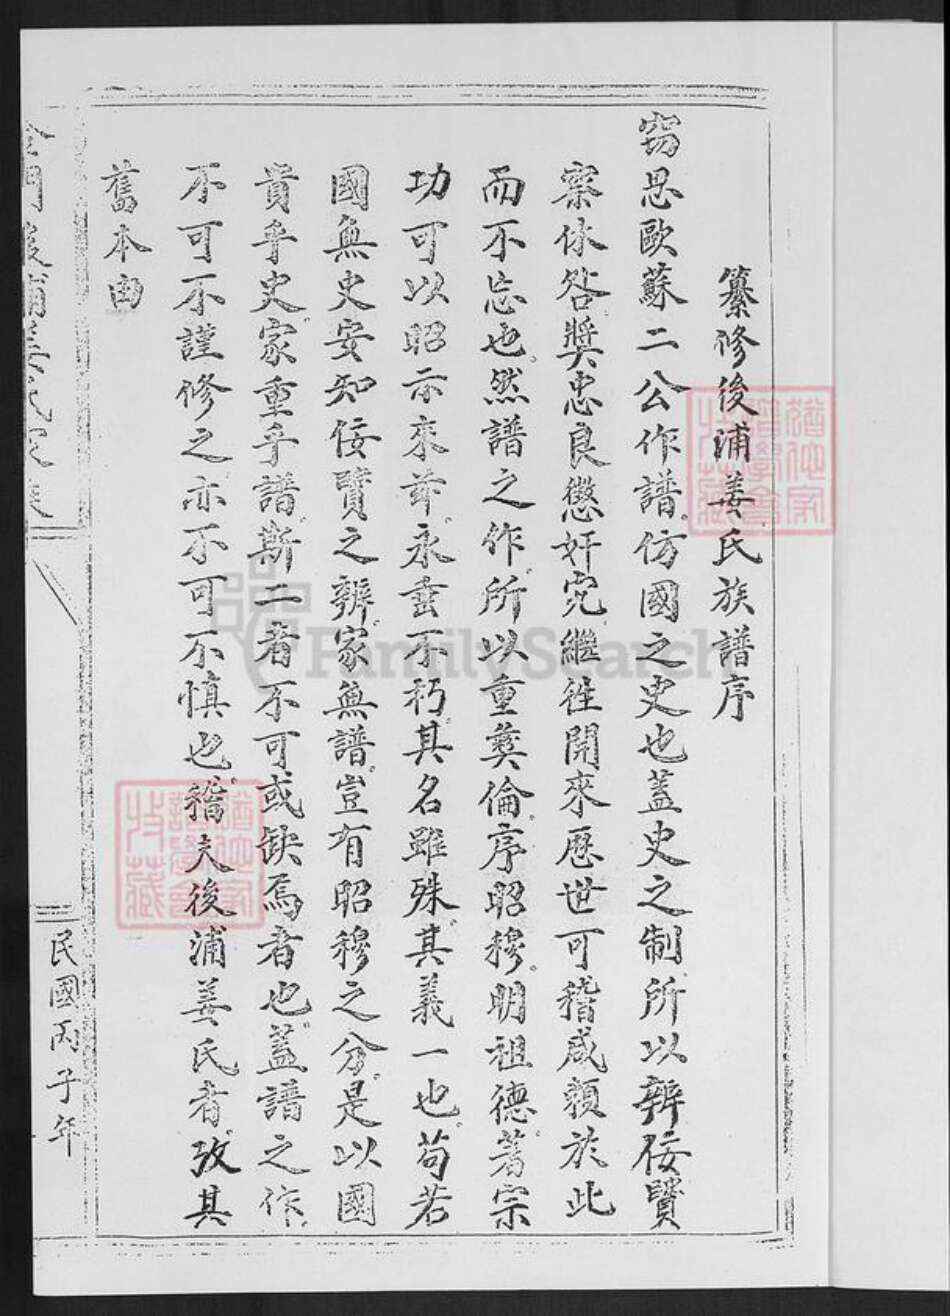 纂修後浦姜氏族譜序
窃思歐蘇二公作譜仿國之史也蓋史之制所以辨佞賢
察休咎獎忠良懲奸宄繼徃開來歷世可稽咸賴於此
而不忘也然譜之作所以重彝倫序昭穆明祖德著宗
功可以昭示來茲永垂不朽其名雖殊其義一也苟若
國無史安知佞賢之辨家無譜豈有昭穆之分是以國
貴乎史家重乎譜斯二者不可或缺焉者也蓋譜之作
不可不謹修之亦不可不慎也稽夫後浦姜氏者攷其
舊本由
金門後浦姜氏家
民國丙子年
譜學會
收藏
譜學會
收藏
FamilySearch